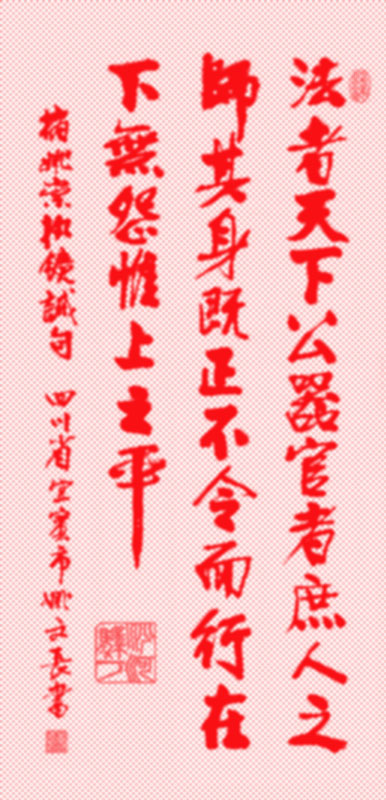 法者天下公器官者庶人之
師其身既正不令而行在
下無怨惟上之平
摘姚崇執鏡誡句 四川省宜賓市姚文長書